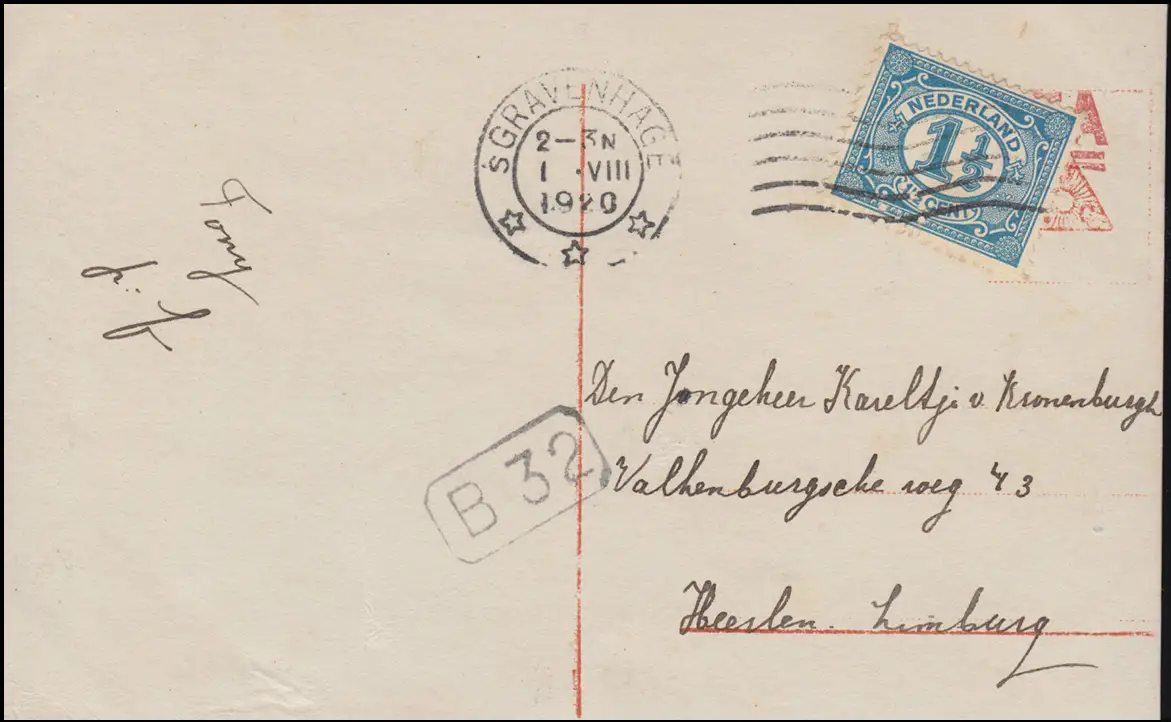 'SGRAVENHAGE
2-3N
1 .VIII
1920
NEDERLAND
1½
1½ CENT
Tony
B 32
Den Jongeheer Kareltje v. Kronenburgh
Valkenburgsche weg 43
Heerlen. Limburg